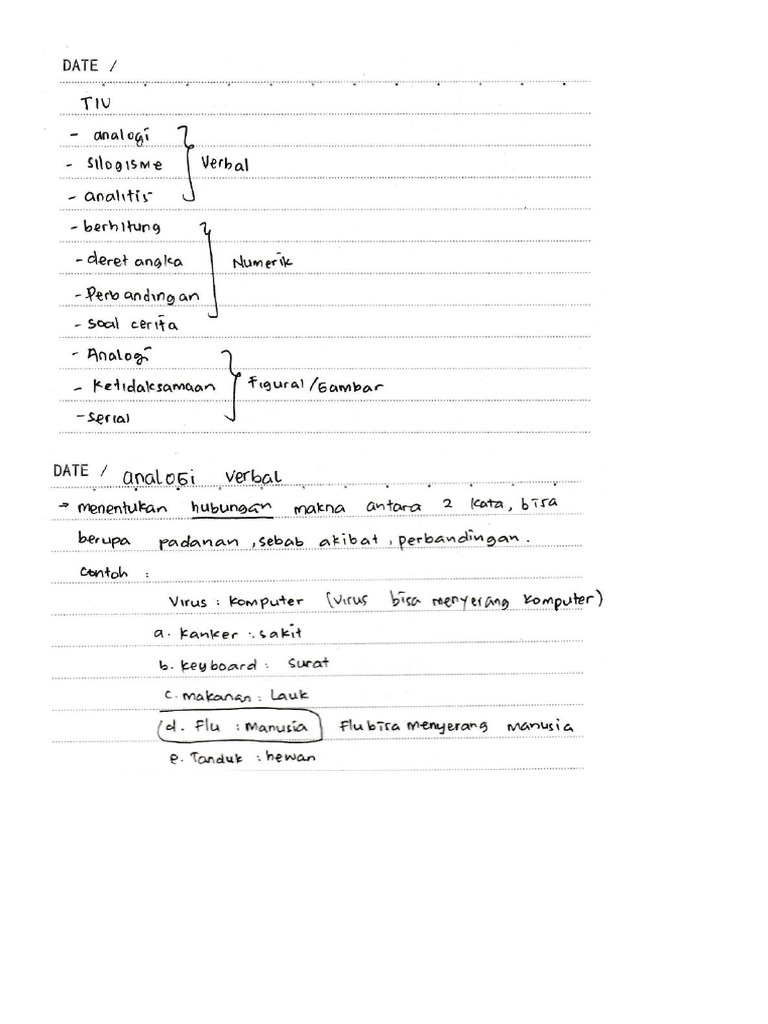 DATE /
TIU
- analogi
- silogisme
Verbal
- analitis
- berhitung
- deret angka
Numerik
- Perbandingan
- soal cerita
- Analogi
- Ketidaksamaan
Figural/Gambar
- serial
DATE / analogi verbal
→ menentukan hubungan makna antara 2 kata, bisa
berupa padanan, sebab akibat, perbandingan.
Contoh :
Virus : Komputer (virus bisa menyerang komputer)
a. kanker : sakit
b. keyboard : surat
c. makanan : Lauk
d. Flu : Manusia Flu bisa menyerang manusia
e. Tanduk : hewan